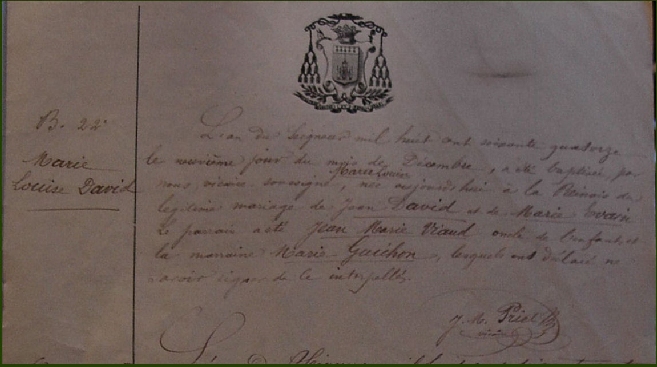 B. 22e
Marie
Louise David
L'an du Seigneur mil huit cent soixante quatorze
le neuvième jour du mois de Décembre, a été baptisée par
Marie Louise
nous vicaire soussigné, née aujourd'hui à la du
légitime mariage de Jean David et de Marie Evain
Le parrain a été Jean Marie Viaud oncle de l'enfant, et
la marraine Marie Guichon, lesquels ont déclaré ne
savoir signer de ce interpellés.
J. M. Priel
L'an du